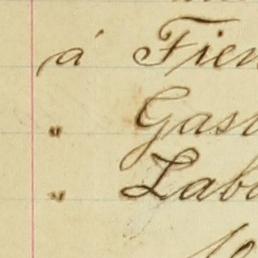 á Fien
" Gast
" Labo